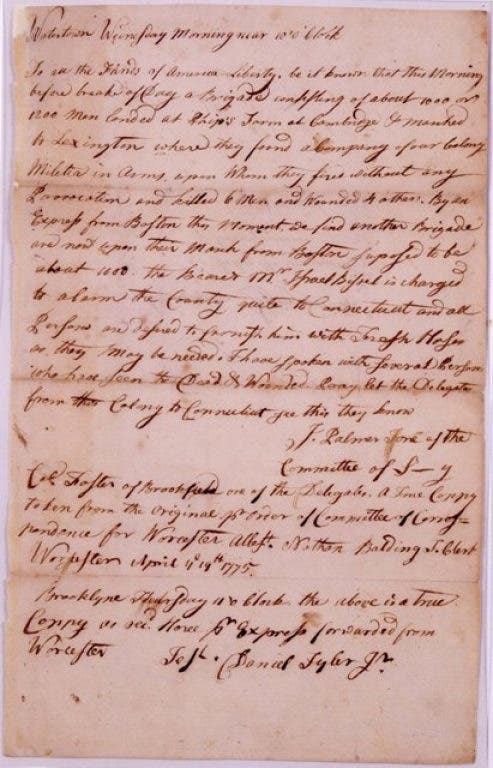 Watertown Wednesday Morning near 10 o'Clock
To all the Friends of America Liberty, be it known that this Morning
before breake of Day a Brigade consisting of about 1000 or
1200 Men landed at Phip's Farm at Cambridge & Marched
to Lexington where they found a Company of our Colony
Militia in Arms, upon Whom they fired without any
Provocation and killed 6 Men and Wounded 4 others. By an
Express from Boston this Moment, we find another Brigade
are now upon their March from Boston suposed to be
about 1000. the Bearer Mr Israel Bissel is charged
to alarm the Country quite to Connecticut and all
Persons are desired to furnish him with Fresh Horses
as they May be needed. I have spoken with Several Persons
who have seen the Dead & Wounded. Pray let the Delegates
from this Colony to Connecticut see this they know
J. Palmer one of the
Committee of S—y
Col. Foster of Brookfield one of the Delegates. A True Coppy
taken from the Original pr Order of Committee of Corres-
pondence for Worcester Attest. Nathan Balding T. Clerk
Worcester April 19th 1775.
Brooklyne Thursday 11 o'Clock the above is a true
Coppy as recd. here pr Express forwarded from
Worcester Test. Daniel Tyler Jr.